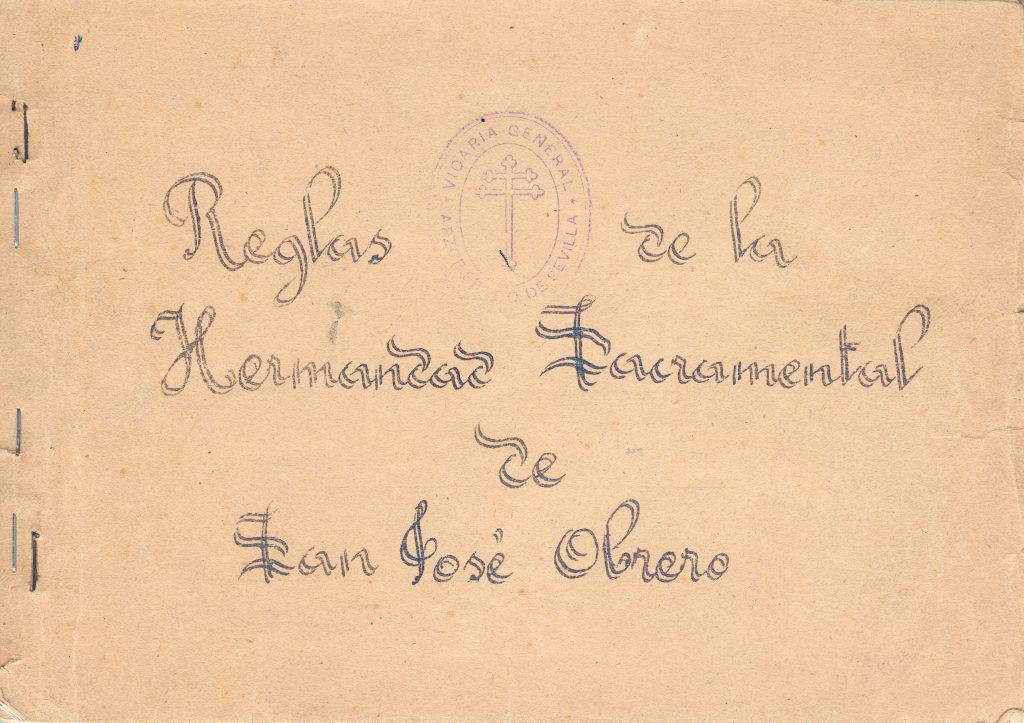 VICARIA GENERAL
DE SEVILLA
Reglas de la
Hermandad Sacramental
de
San José Obrero